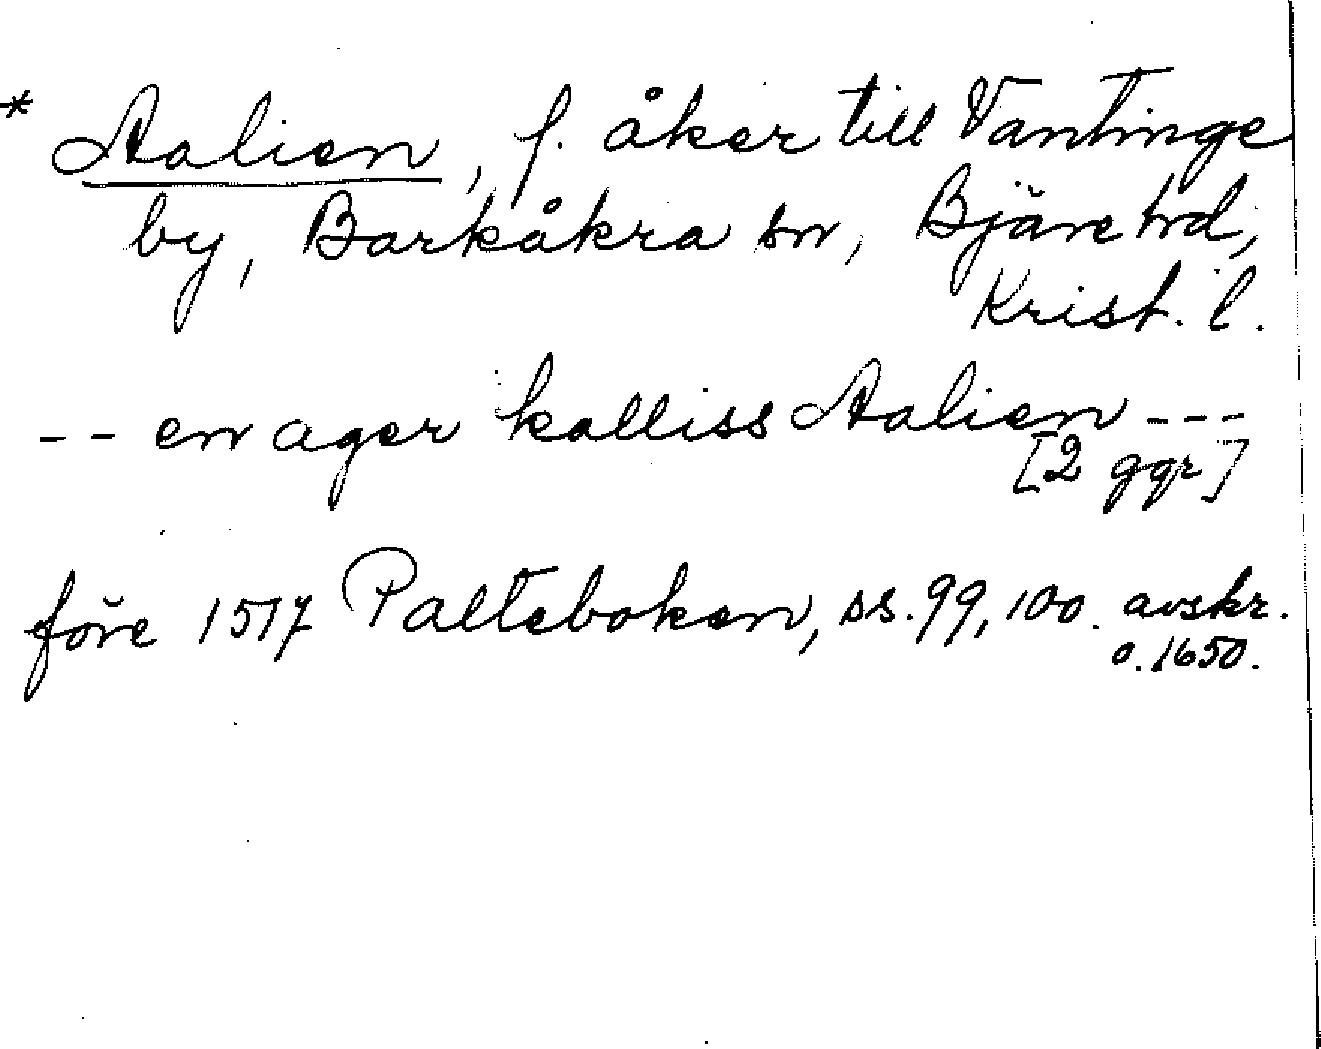 * Aalien, f. åker till Vantinge
by, Barkåkra sn, Bjäre hd,
Krist. l.
-- en ager kalliss Aalien ---
[2 ggr]
före 1517 Palteboken, ss. 99, 100. avskr.
o. 1650.